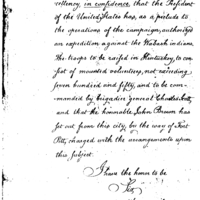 cellency, in confidence that the President
of the United States has, as a prelude to
the operations of the campaign, authorized
an expedition against the Wabash indians.
The troops to be raised in Kentuckey, to con-
sist of mounted volunteers, not exceeding
seven hundred and fifty, and to be com-
manded by brigadier general Charles Scott,
and that the honorable John Brown has
set out from this city, by the way of Fort
Pitt, charged with the arrangements upon
this subject.
I have the honor to be